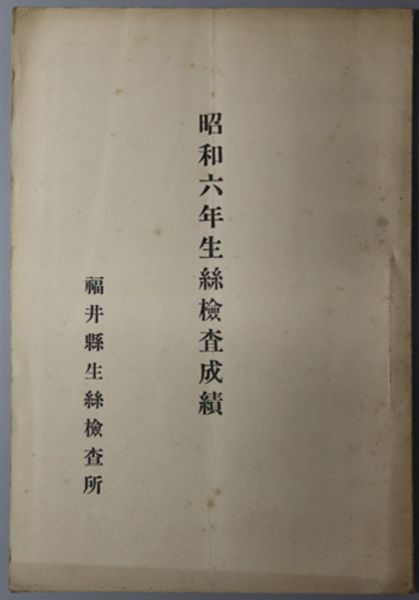 昭和六年生絲檢査成績
福井縣生絲檢查所